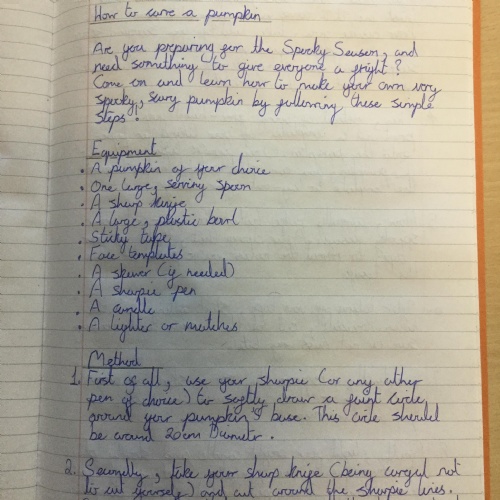 How to carve a pumpkin
Are you preparing for the Spooky Season, and
need something to give everyone a fright?
Come on and learn how to make your own very
spooky, scary pumpkin by following these simple
steps!
Equipment
• A pumpkin of your choice
• One large, serving spoon
• A sharp knife
• A large, plastic bowl
• Sticky tape
• Face templates
• A skewer (if needed)
• A sharpie pen
• A candle
• A lighter or matches
Method
1. First of all, use your sharpie (or any other
pen of choice) to softly draw a faint circle
around your pumpkin's base. This circle should
be around 20cm Diameter.
2. Secondly, take your sharp knife (being careful not
to cut yourself) and cut around the sharpie lines.